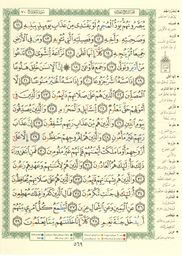 يُبَصَّرُونَهُمْ يَوَدُّ الْمُجْرِمُ لَوْ يَفْتَدِي مِنْ عَذَابِ يَوْمِئِذٍ بِبَنِيهِ ١١
وَصَاحِبَتِهِ وَأَخِيهِ ١٢ وَفَصِيلَتِهِ الَّتِي تُؤْوِيهِ ١٣ وَمَن فِي الْأَرْضِ
جَمِيعًا ثُمَّ يُنجِيهِ ١٤ كَلَّا إِنَّهَا لَظَىٰ ١٥ نَزَّاعَةً لِّلشَّوَىٰ ١٦ تَدْعُو
مَنْ أَدْبَرَ وَتَوَلَّىٰ ١٧ وَجَمَعَ فَأَوْعَىٰ ١٨ إِنَّ الْإِنسَانَ خُلِقَ هَلُوعًا ١٩
إِذَا مَسَّهُ الشَّرُّ جَزُوعًا ٢٠ وَإِذَا مَسَّهُ الْخَيْرُ مَنُوعًا ٢١ إِلَّا الْمُصَلِّينَ ٢٢
الَّذِينَ هُمْ عَلَىٰ صَلَاتِهِمْ دَائِمُونَ ٢٣ وَالَّذِينَ فِي أَمْوَالِهِمْ
حَقٌّ مَّعْلُومٌ ٢٤ لِّلسَّائِلِ وَالْمَحْرُومِ ٢٥ وَالَّذِينَ يُصَدِّقُونَ بِيَوْمِ
الدِّينِ ٢٦ وَالَّذِينَ هُم مِّنْ عَذَابِ رَبِّهِم مُّشْفِقُونَ ٢٧ إِنَّ عَذَابَ رَبِّهِمْ
غَيْرُ مَأْمُونٍ ٢٨ وَالَّذِينَ هُمْ لِفُرُوجِهِمْ حَافِظُونَ ٢٩ إِلَّا عَلَىٰ
أَزْوَاجِهِمْ أَوْ مَا مَلَكَتْ أَيْمَانُهُمْ فَإِنَّهُمْ غَيْرُ مَلُومِينَ ٣٠ فَمَنِ ابْتَغَىٰ
وَرَاءَ ذَٰلِكَ فَأُولَٰئِكَ هُمُ الْعَادُونَ ٣١ وَالَّذِينَ هُمْ لِأَمَانَاتِهِمْ وَعَهْدِهِمْ
رَاعُونَ ٣٢ وَالَّذِينَ هُم بِشَهَادَاتِهِمْ قَائِمُونَ ٣٣ وَالَّذِينَ هُمْ عَلَىٰ صَلَاتِهِمْ
يُحَافِظُونَ ٣٤ أُولَٰئِكَ فِي جَنَّاتٍ مُّكْرَمُونَ ٣٥ فَمَالِ الَّذِينَ كَفَرُوا قِبَلَكَ مُهْطِعِينَ ٣٦
عَنِ الْيَمِينِ وَعَنِ الشِّمَالِ عِزِينَ ٣٧ أَيَطْمَعُ كُلُّ امْرِئٍ مِّنْهُمْ أَن
يُدْخَلَ جَنَّةَ نَعِيمٍ ٣٨ كَلَّا إِنَّا خَلَقْنَاهُم مِّمَّا يَعْلَمُونَ ٣٩
٥٦٩